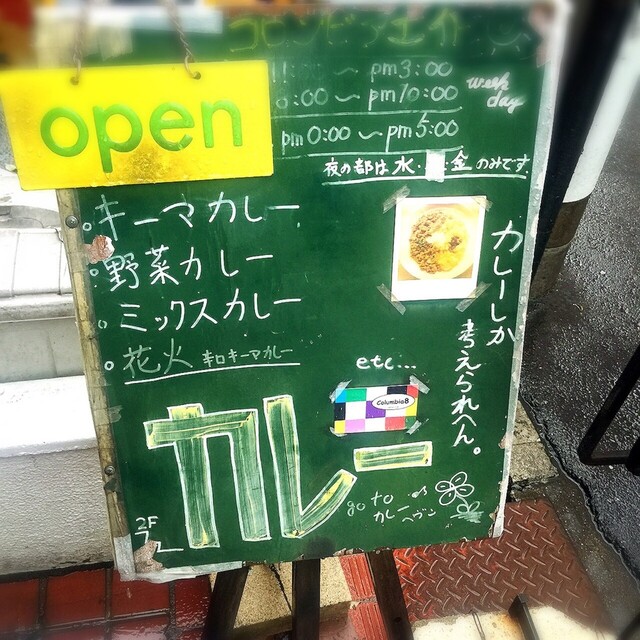 コロンビアエイト
open
~ pm3:00
:00 ~ pm10:00
week
day
pm0:00 ~ pm5:00
夜の部は水・金のみです
キーマカレー
野菜カレー
ミックスカレー
花火 辛口キーマカレー
カレーしか
考えられへん。
etc...
Columbia8
カレー
go to
カレーヘヴン
2F